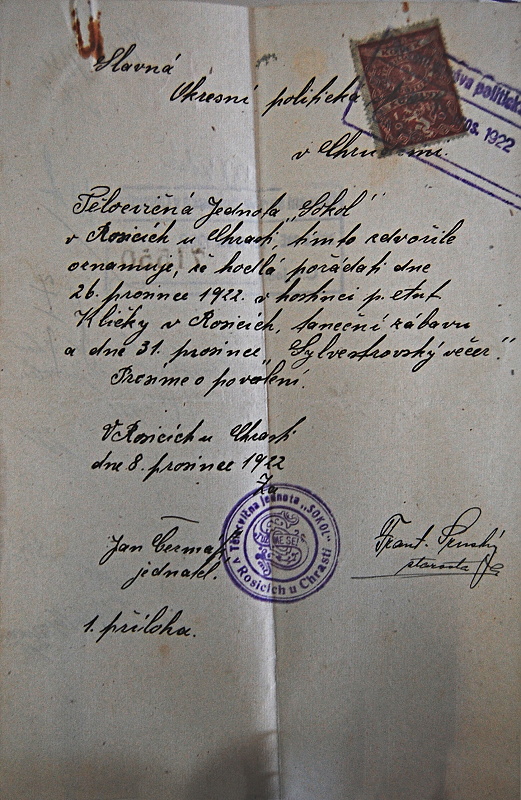 Slavná
Okresní politická
v Chrudimi.
práva politick
os. 1922
Tělocvičná Jednota „Sokol"
v Rosicích u Chrasti, tímto zdvořile
oznamuje, že hodlá pořádati dne
26. prosince 1922. v hostinci p.
Kličky v Rosicích, taneční zábavu
a dne 31. prosince „Sylvestrovský večer."
Prosíme o povolení.
V Rosicích u Chrasti
dne 8. prosince 1922
Za
Tělocvičná jednota „SOKOL"
v Rosicích u Chrasti
Jan Čermák
jednatel.
Frant.
starosta
1. příloha.